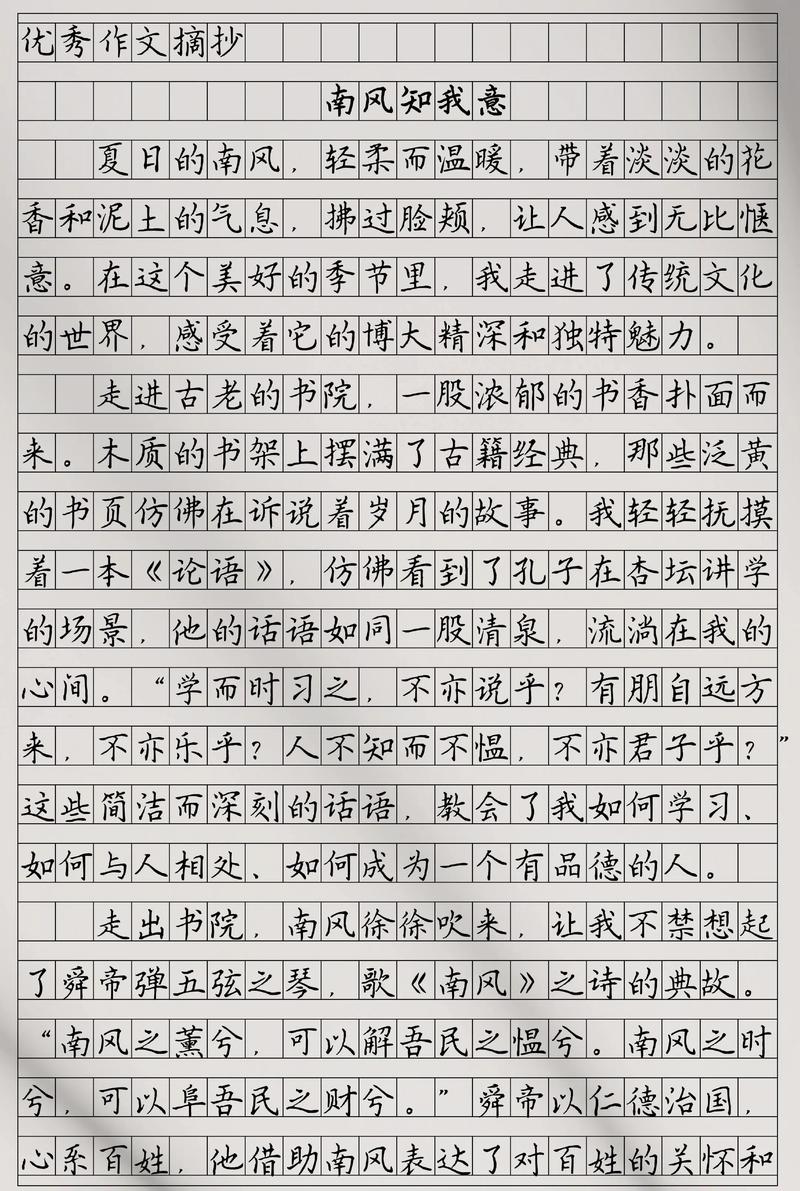 优秀作文摘抄
南风知我意
夏日的南风，轻柔而温暖，带着淡淡的花
香和泥土的气息，拂过脸颊，让人感到无比惬
意。在这个美好的季节里，我走进了传统文化
的世界，感受着它的博大精深和独特魅力。
走进古老的书院，一股浓郁的书香扑面而
来。木质的书架上摆满了古籍经典，那些泛黄
的书页仿佛在诉说着岁月的故事。我轻轻抚摸
着一本《论语》，仿佛看到了孔子在杏坛讲学
的场景，他的话语如同一股清泉，流淌在我的
心间。“学而时习之，不亦说乎？有朋自远方
来，不亦乐乎？人不知而不愠，不亦君子乎？”
这些简洁而深刻的话语，教会了我如何学习、
如何与人相处、如何成为一个有品德的人。
走出书院，南风徐徐吹来，让我不禁想起
了舜帝弹五弦之琴，歌《南风》之诗的典故。
“南风之薰兮，可以解吾民之愠兮。南风之时
兮，可以阜吾民之财兮。”舜帝以仁德治国，
心系百姓，他借助南风表达了对百姓的关怀和